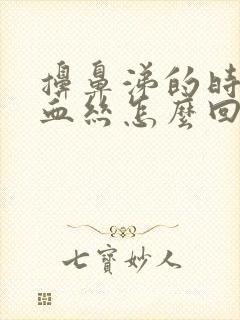 擤鼻涕的時
血絲怎麼回
七寶妙人